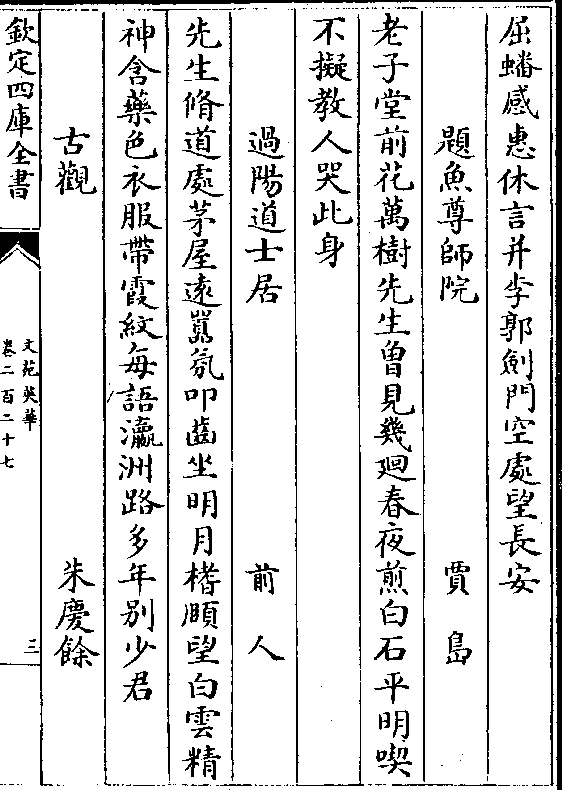 屈蟠感惠休言并李郭劍門空處望長安
題魚尊師院 賈島
老子堂前花萬樹先生曾見幾廻春夜煎白石平明喫
不擬教人哭此身
過陽道士居 前人
先生脩道處茅屋遠囂氛叩齒坐明月榰頤望白雲精
神含藥色衣服帶霞紋每語瀛洲路多年别少君
古觀 朱慶餘
欽定四庫全書
文苑英華
卷二百二十七
三